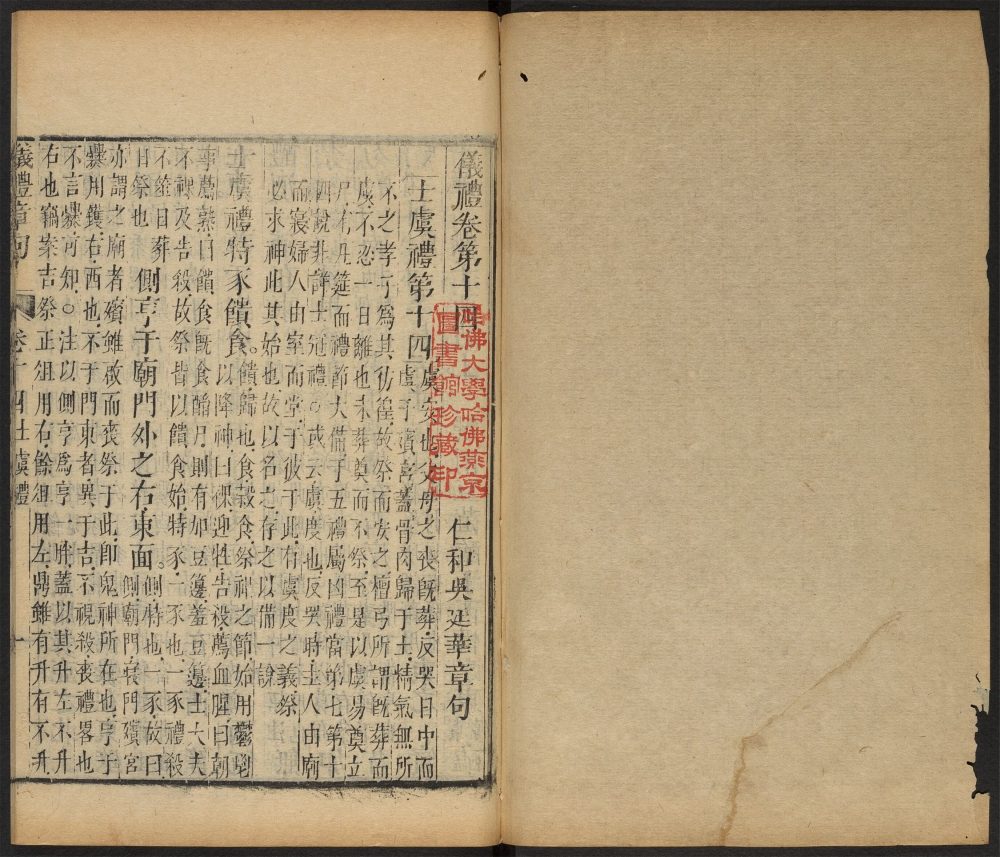 儀禮卷第十四
仁和吳廷華章句
士虞禮第十四
虞安也父母之喪既葬反哭日中而
虞于殯宮蓋骨肉歸于土情氣無所
不之孝子爲其彷徨故祭而安之檀弓所謂既葬而
虞不忍一日離也未葬奠而不祭至是以虞易奠立
尸有几筵而禮節大備于五禮屬凶禮當第七第十
四說非詳士冠禮○或云虞度也反哭時主人由廟
而寢婦人由室而堂于彼于此有虞度之義祭
必求神此其始也故以名之存之以備一說
士虞禮特豕饋食
饋歸也食穀食祭祀之節始用鬱鬯
以降神曰祼迎牲告殺薦血腥曰朝
事薦熟曰饋食既食酳尸則有加豆籩羞豆籩士大夫
不祼及告殺故祭皆以饋食始特豕一豕也一豕禮殺
不筮日葬
日祭也
側亨于廟門外之右東面
側特也一豕故曰
側廟門寢門殯宮
亦謂之廟者殯雖啟而喪祭于此即鬼神所在也亨于
爨用鑊右西也不于門東者異于吉不視殺喪禮畧也
不言爨可知○注以側亨爲亨一胖蓋以其升左不升
右也竊案吉祭正俎用右餘俎用左鼎雖有升有不升
儀禮章句
卷十四士虞禮
一
哈佛大學哈佛燕京
圖書館珍藏印